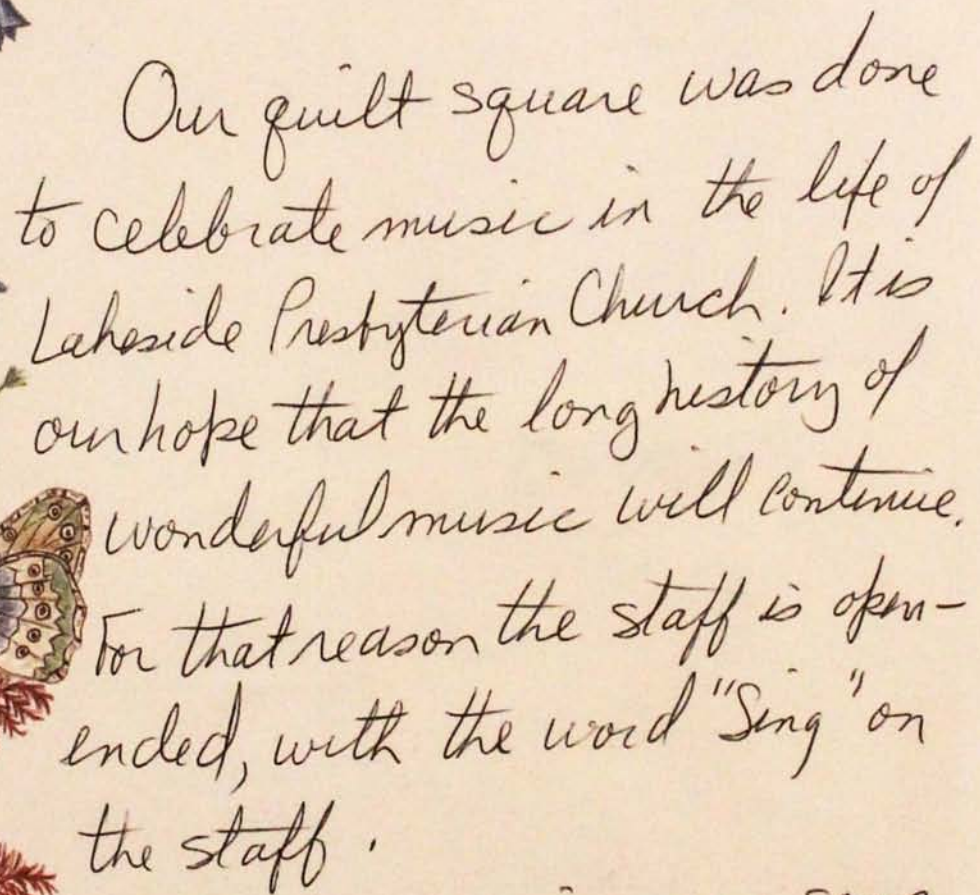 Our quilt square was done
to celebrate music in the life of
Lakeside Presbyterian Church. It is
our hope that the long history of
wonderful music will continue.
For that reason the staff is open-
ended, with the word "Sing" on
the staff.